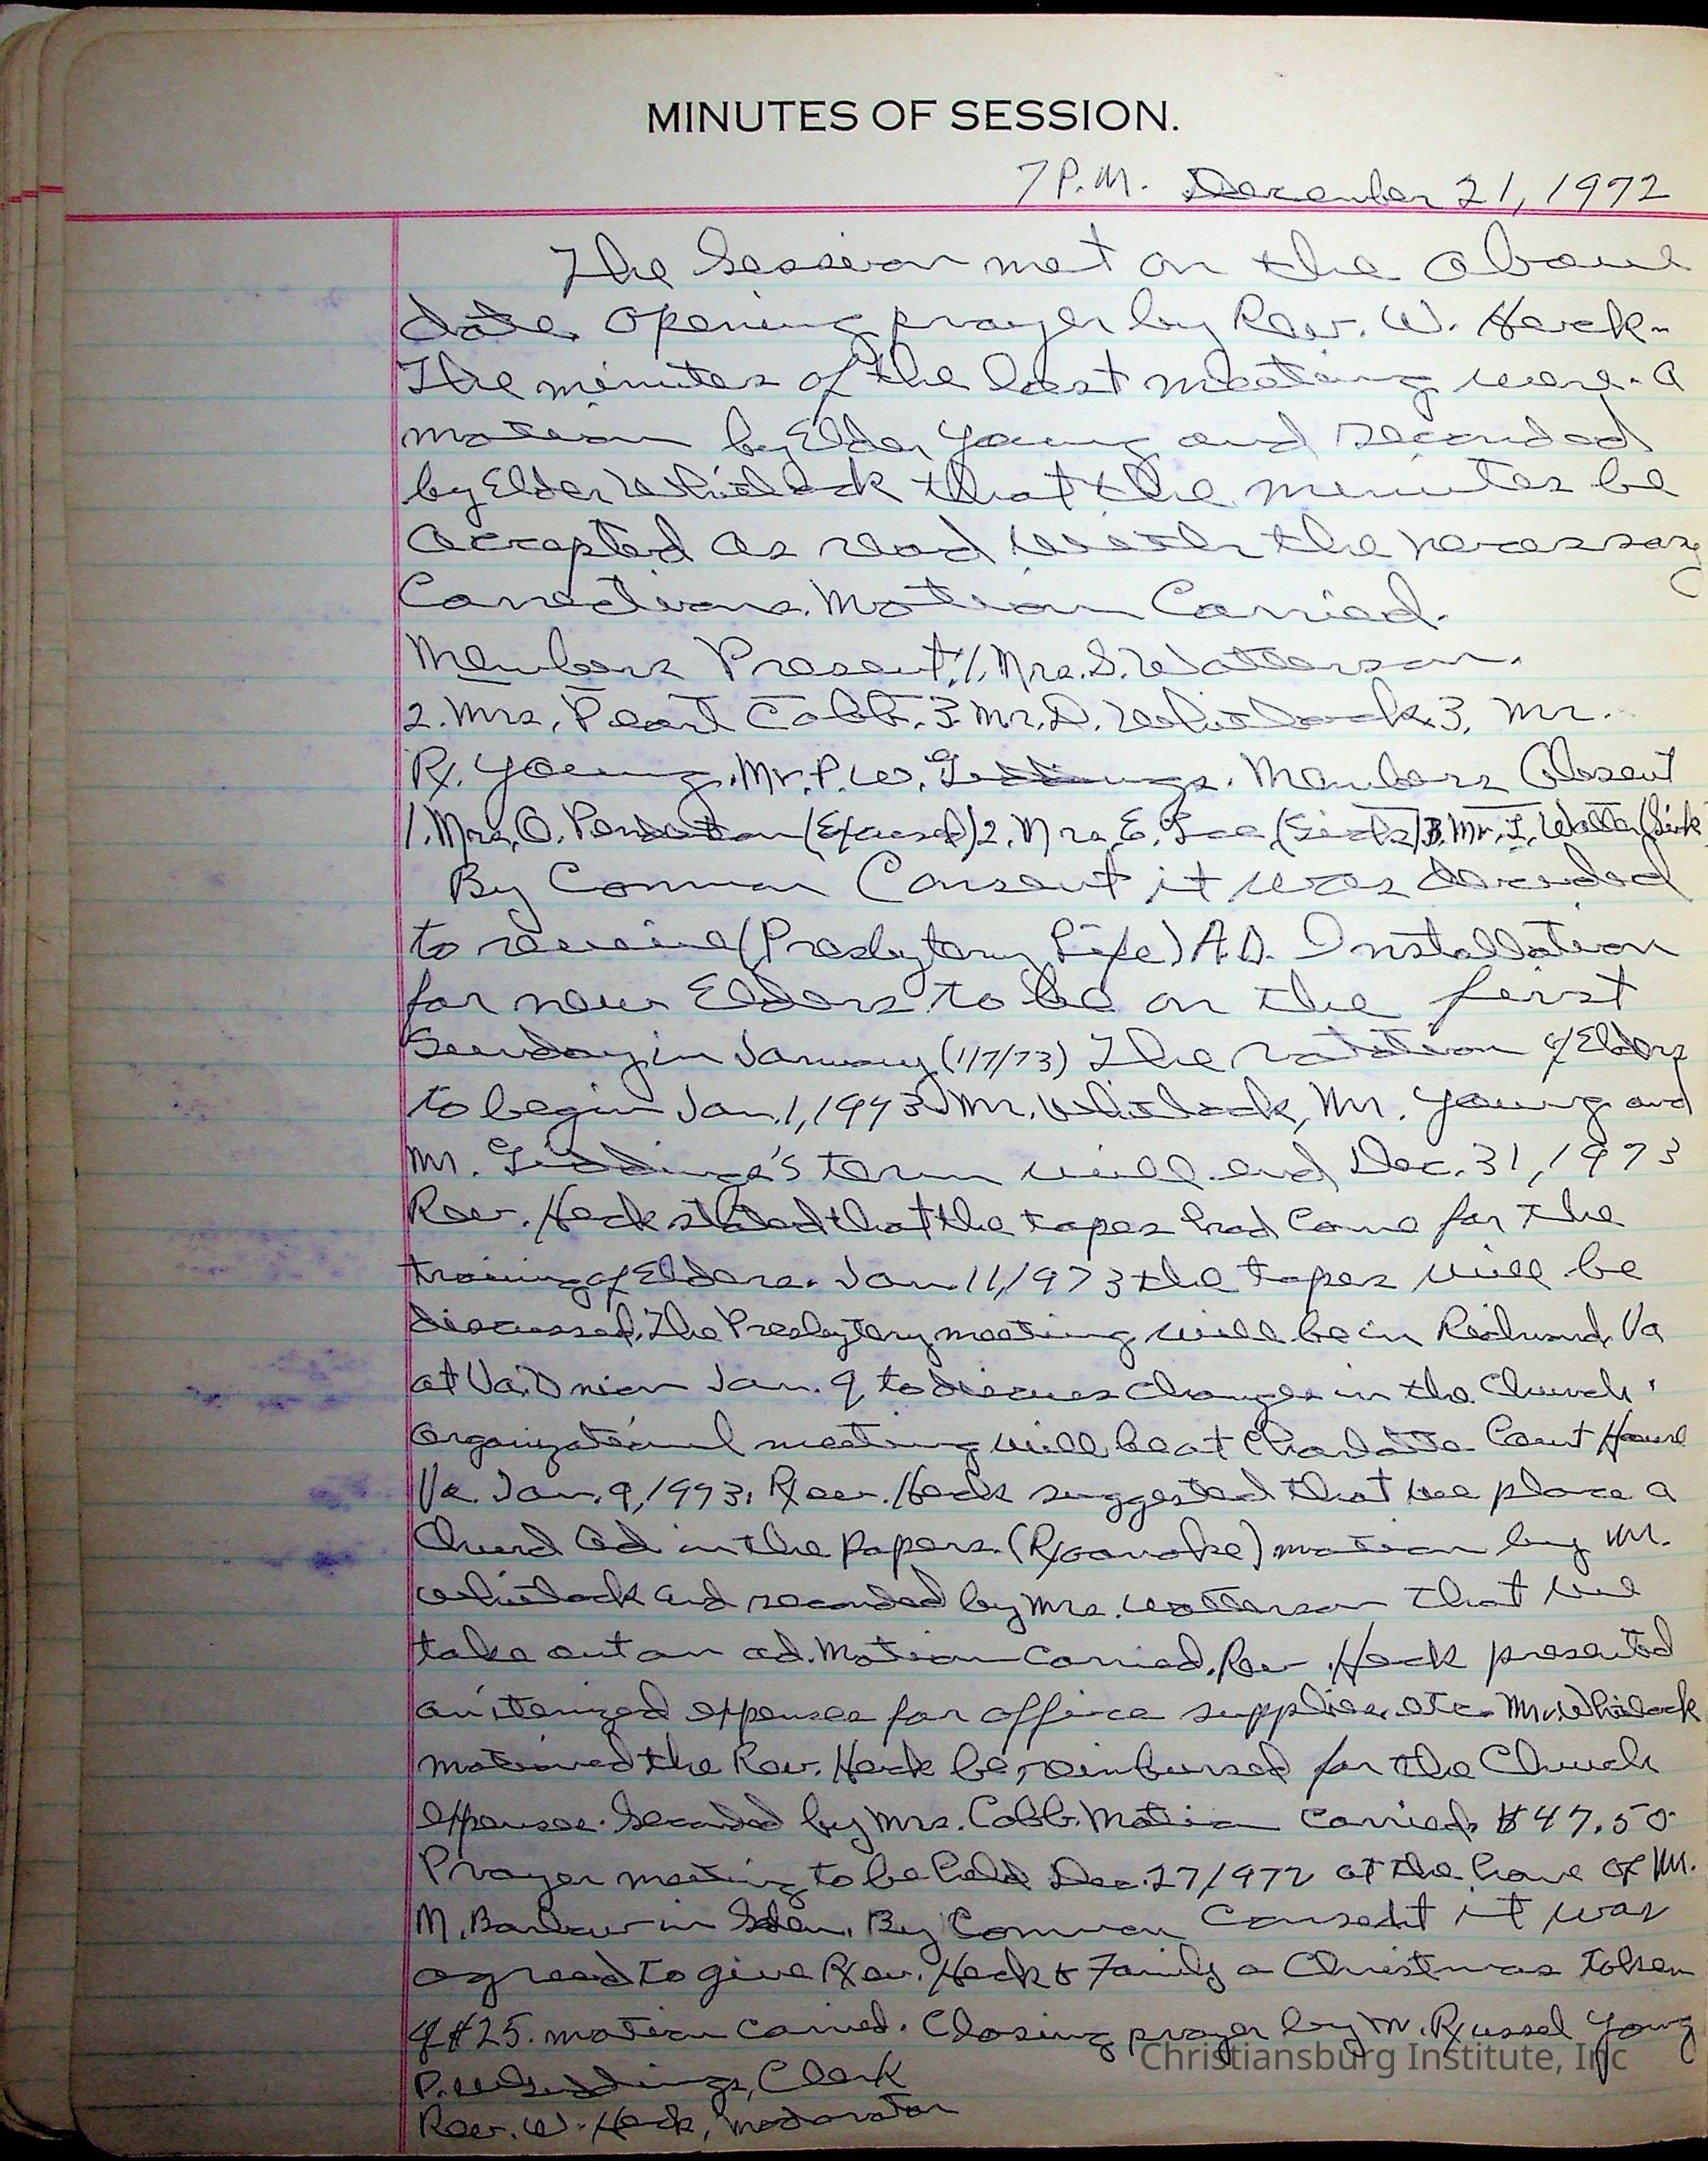 MINUTES OF SESSION.
7 P.M. December 21, 1972
The Session met on the above
date. Opening prayer by Rev. W. Heck.
The minutes of the last meeting were. a
motion by Elder Young and seconded
by Elder Whitlock that the minutes be
accepted as read with the necessary
Corrections. Motion Carried.
Members Present: 1. Mrs. S. Watterson.
2. Mrs. Pearl Cobb. 3. Mr. D. Whitlock. 3. Mr.
R. Young. Mr. P. W. Giddings. Members Absent
1. Mrs. O. Pendleton (Excused) 2. Mrs. E. Lee (Sick) 3. Mr. I. (Sick)
By Common Consent it was decided
to receive (Presbytery Life) A.D. Installation
for new Elders to be on the first
Sunday in January (1/7/73) The rotation of Elders
to begin Jan. 1, 1973. Mr. Whitlock, Mr. Young and
Mr. Giddings's term will end Dec. 31, 1973
Rev. Heck stated that the tapes had come for the
training of Elders. Jan 11, 1973 the tapes will be
discussed. The Presbytery meeting will be in Richmond, Va
at Va. Union Jan. 9, to discuss changes in the Church.
Organizational meeting will be at Charlotte Court House
Va. Jan. 9, 1973. Rev. Heck suggested that we place a
Church Ad in the papers. (Roanoke) motion by Mr.
Whitlock and seconded by Mrs. Watterson that we
take out an ad. Motion Carried. Rev. Heck presented
an itemized expenses for office supplies, etc. Mr. Whitlock
motioned the Rev. Heck be reimbursed for the Church
expenses. Seconded by Mrs. Cobb. Motion Carried. $47.50
Prayer meeting to be held Dec. 27, 1972 at the home of Mr.
M. in By Common Consent it was
agreed to give Rev. Heck & Family a Christmas token
of $25. motion carried. Closing prayer by Mr. Russel Young
P. W. Giddings, Clerk
Rev. W. Heck, Moderator
Christiansburg Institute, Inc